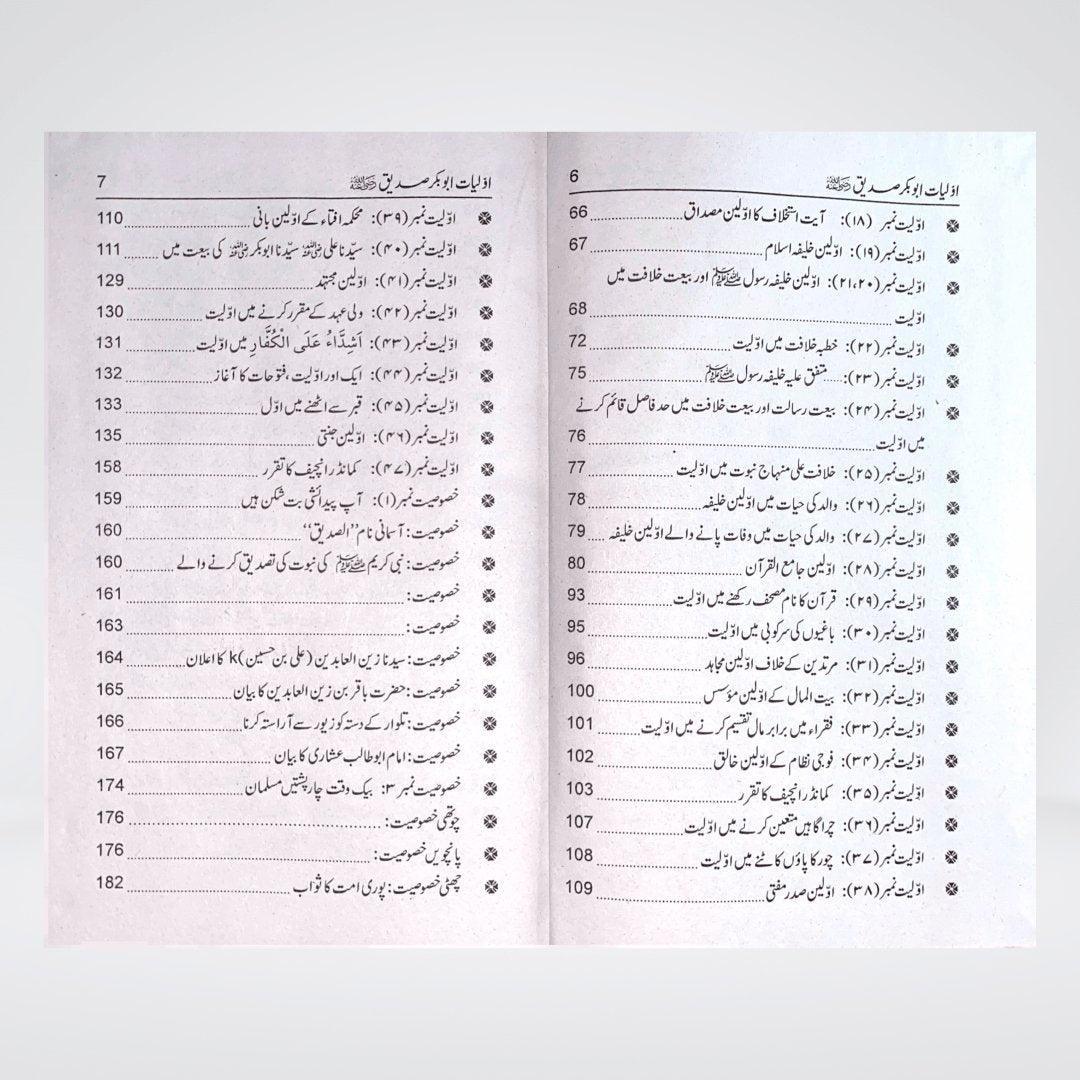 اوّلیات ابوبکر صدیق ﷛ 6
اوّلیت نمبر (۱۸): آیت استخلاف کا اوّلین مصداق 66
اوّلیت نمبر (۱۹): اوّلین خلیفہ اسلام 67
اوّلیت نمبر (۲۱،۲۰): اوّلین خلیفہ رسول ﷺ اور بیعت خلافت میں
اوّلیت 68
اوّلیت نمبر (۲۲): خطبہ خلافت میں اوّلیت 72
اوّلیت نمبر (۲۳): ..... متفق علیہ خلیفہ رسول ﷺ 75
اوّلیت نمبر (۲۴): بیعت رسالت اور بیعت خلافت میں حد فاصل قائم کرنے
میں اوّلیت 76
اوّلیت نمبر (۲۵): خلافت علی منہاج نبوت میں اوّلیت 77
اوّلیت نمبر (۲۶): والد کی حیات میں اوّلین خلیفہ 78
اوّلیت نمبر (۲۷): والد کی حیات میں وفات پانے والے اوّلین خلیفہ 79
اوّلیت نمبر (۲۸): اوّلین جامع القرآن 80
اوّلیت نمبر (۲۹): قرآن کا نام مصحف رکھنے میں اوّلیت 93
اوّلیت نمبر (۳۰): باغیوں کی سرکوبی میں اوّلیت 95
اوّلیت نمبر (۳۱): مرتدین کے خلاف اوّلین مجاہد 96
اوّلیت نمبر (۳۲): بیت المال کے اوّلین مؤسس 100
اوّلیت نمبر (۳۳): فقراء میں برابر مال تقسیم کرنے میں اوّلیت 101
اوّلیت نمبر (۳۴): فوجی نظام کے اوّلین خالق 102
اوّلیت نمبر (۳۵): کمانڈر انچیف کا تقرر 103
اوّلیت نمبر (۳۶): چراگاہیں متعین کرنے میں اوّلیت 107
اوّلیت نمبر (۳۷): چور کا پاؤں کاٹنے میں اوّلیت 108
اوّلیت نمبر (۳۸): اوّلین صدر مفتی 109
اوّلیات ابوبکر صدیق ﷛ 7
اوّلیت نمبر (۳۹): محکمہ افتاء کے اوّلین بانی 110
اوّلیت نمبر (۴۰): سیّدنا علی ﷛ سیّدنا ابوبکر ﷛ کی بیعت میں 111
اوّلیت نمبر (۴۱): اوّلین مجتہد 129
اوّلیت نمبر (۴۲): ولی عہد کے مقرر کرنے میں اوّلیت 130
اوّلیت نمبر (۴۳): اَشِدَّاءُ عَلَی الْکُفَّارِ میں اوّلیت 131
اوّلیت نمبر (۴۴): ایک اور اوّلیت، فتوحات کا آغاز 132
اوّلیت نمبر (۴۵): قبر سے اٹھنے میں اوّل 133
اوّلیت نمبر (۴۶): اوّلین جنتی 135
اوّلیت نمبر (۴۷): کمانڈر انچیف کا تقرر 158
خصوصیت نمبر (۱): آپ پیدائشی بت شکن ہیں 159
خصوصیت: آسمانی نام ”الصدیق“ 160
خصوصیت: نبی کریم ﷺ کی نبوت کی تصدیق کرنے والے 160
خصوصیت: 161
خصوصیت: 163
خصوصیت: سیدنا زین العابدین (علی بن حسین) k کا اعلان 164
خصوصیت: حضرت باقر بن زین العابدین کا بیان 165
خصوصیت: تلوار کے دستہ کو زیور سے آراستہ کرنا 166
خصوصیت: امام ابوطالب عشاری کا بیان 167
خصوصیت نمبر ۳: بیک وقت چار پشتیں مسلمان 174
چوتھی خصوصیت: 176
پانچویں خصوصیت: 176
چھٹی خصوصیت: پوری امت کا ثواب 182